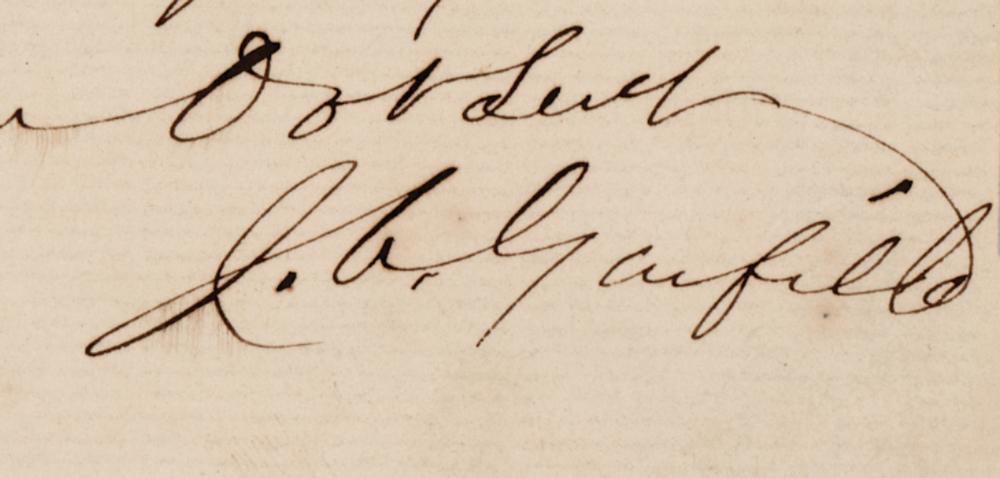 Obt Servt
J. A. Garfield